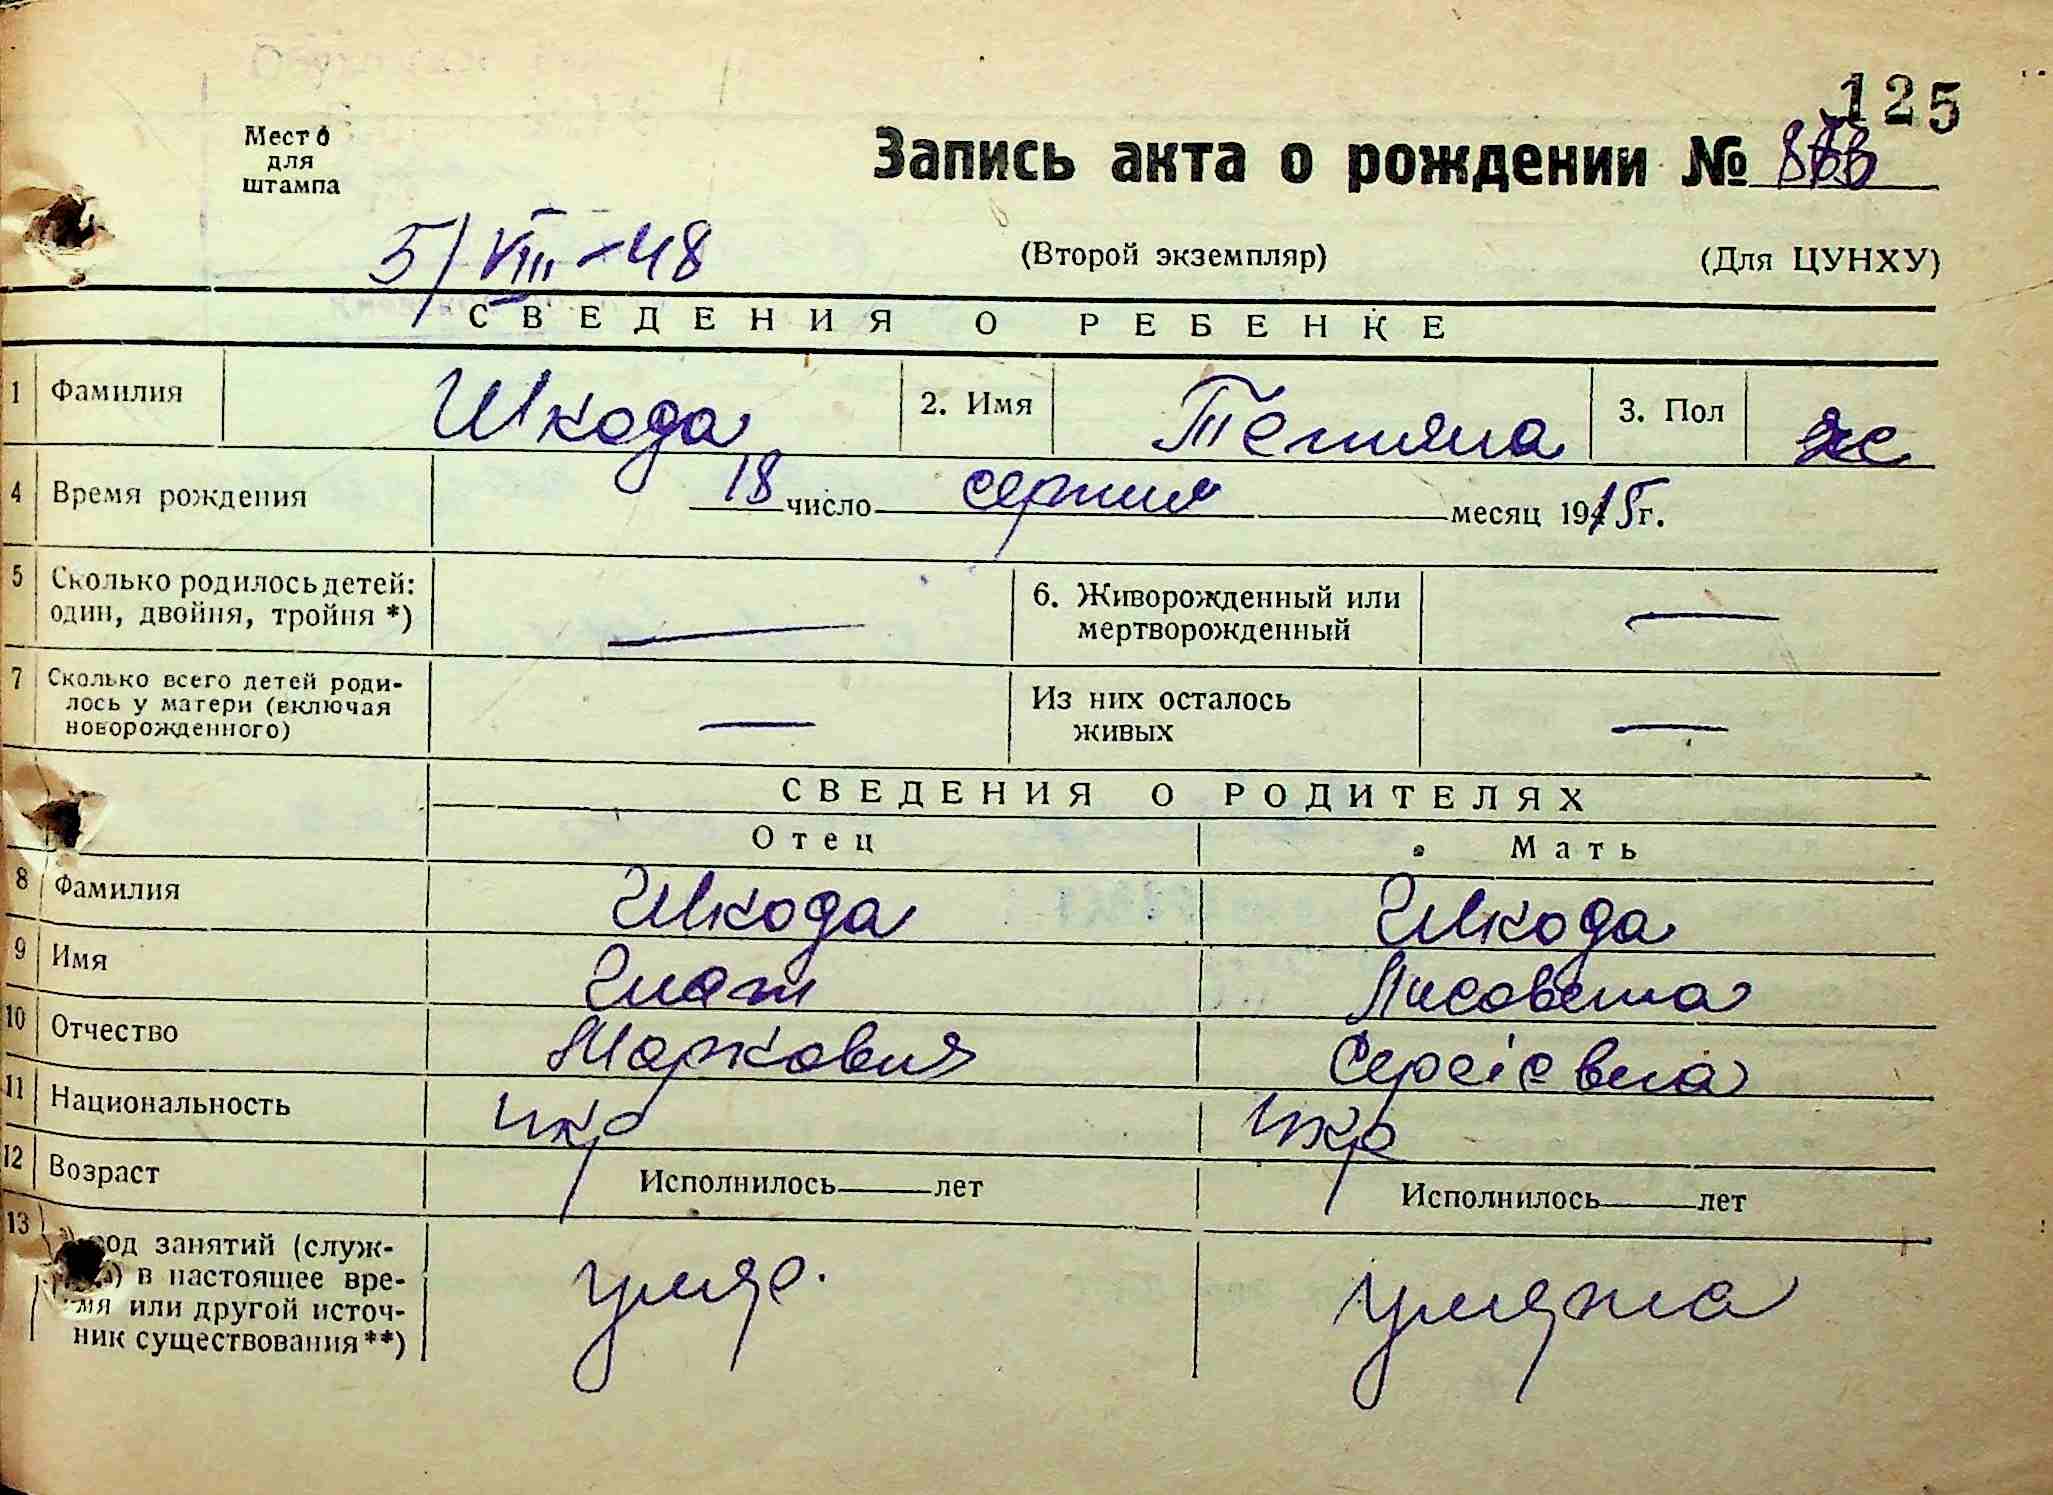 125
Место
для
штампа
Запись акта о рождении №
5/VIII-48
(Второй экземпляр) (Для ЦУНХУ)
СВЕДЕНИЯ О РЕБЕНКЕ
1 Фамилия Шкода 2. Имя Тетяна 3. Пол ж
4 Время рождения 18 число серпня месяц 1915г.
5 Сколько родилось детей: — 6. Живорожденный или —
один, двойня, тройня *) мертворожденный
7 Сколько всего детей роди- — Из них осталось —
лось у матери (включая живых
новорожденного)
СВЕДЕНИЯ О РОДИТЕЛЯХ
Отец Мать
8 Фамилия Шкода Шкода
9 Имя Гнат Лисавета
10 Отчество Маркович Сергієвна
11 Национальность укр укр
12 Возраст Исполнилось — лет Исполнилось — лет
13 род занятий (служ-
в настоящее вре-
мя или другой источ-
ник существования**)